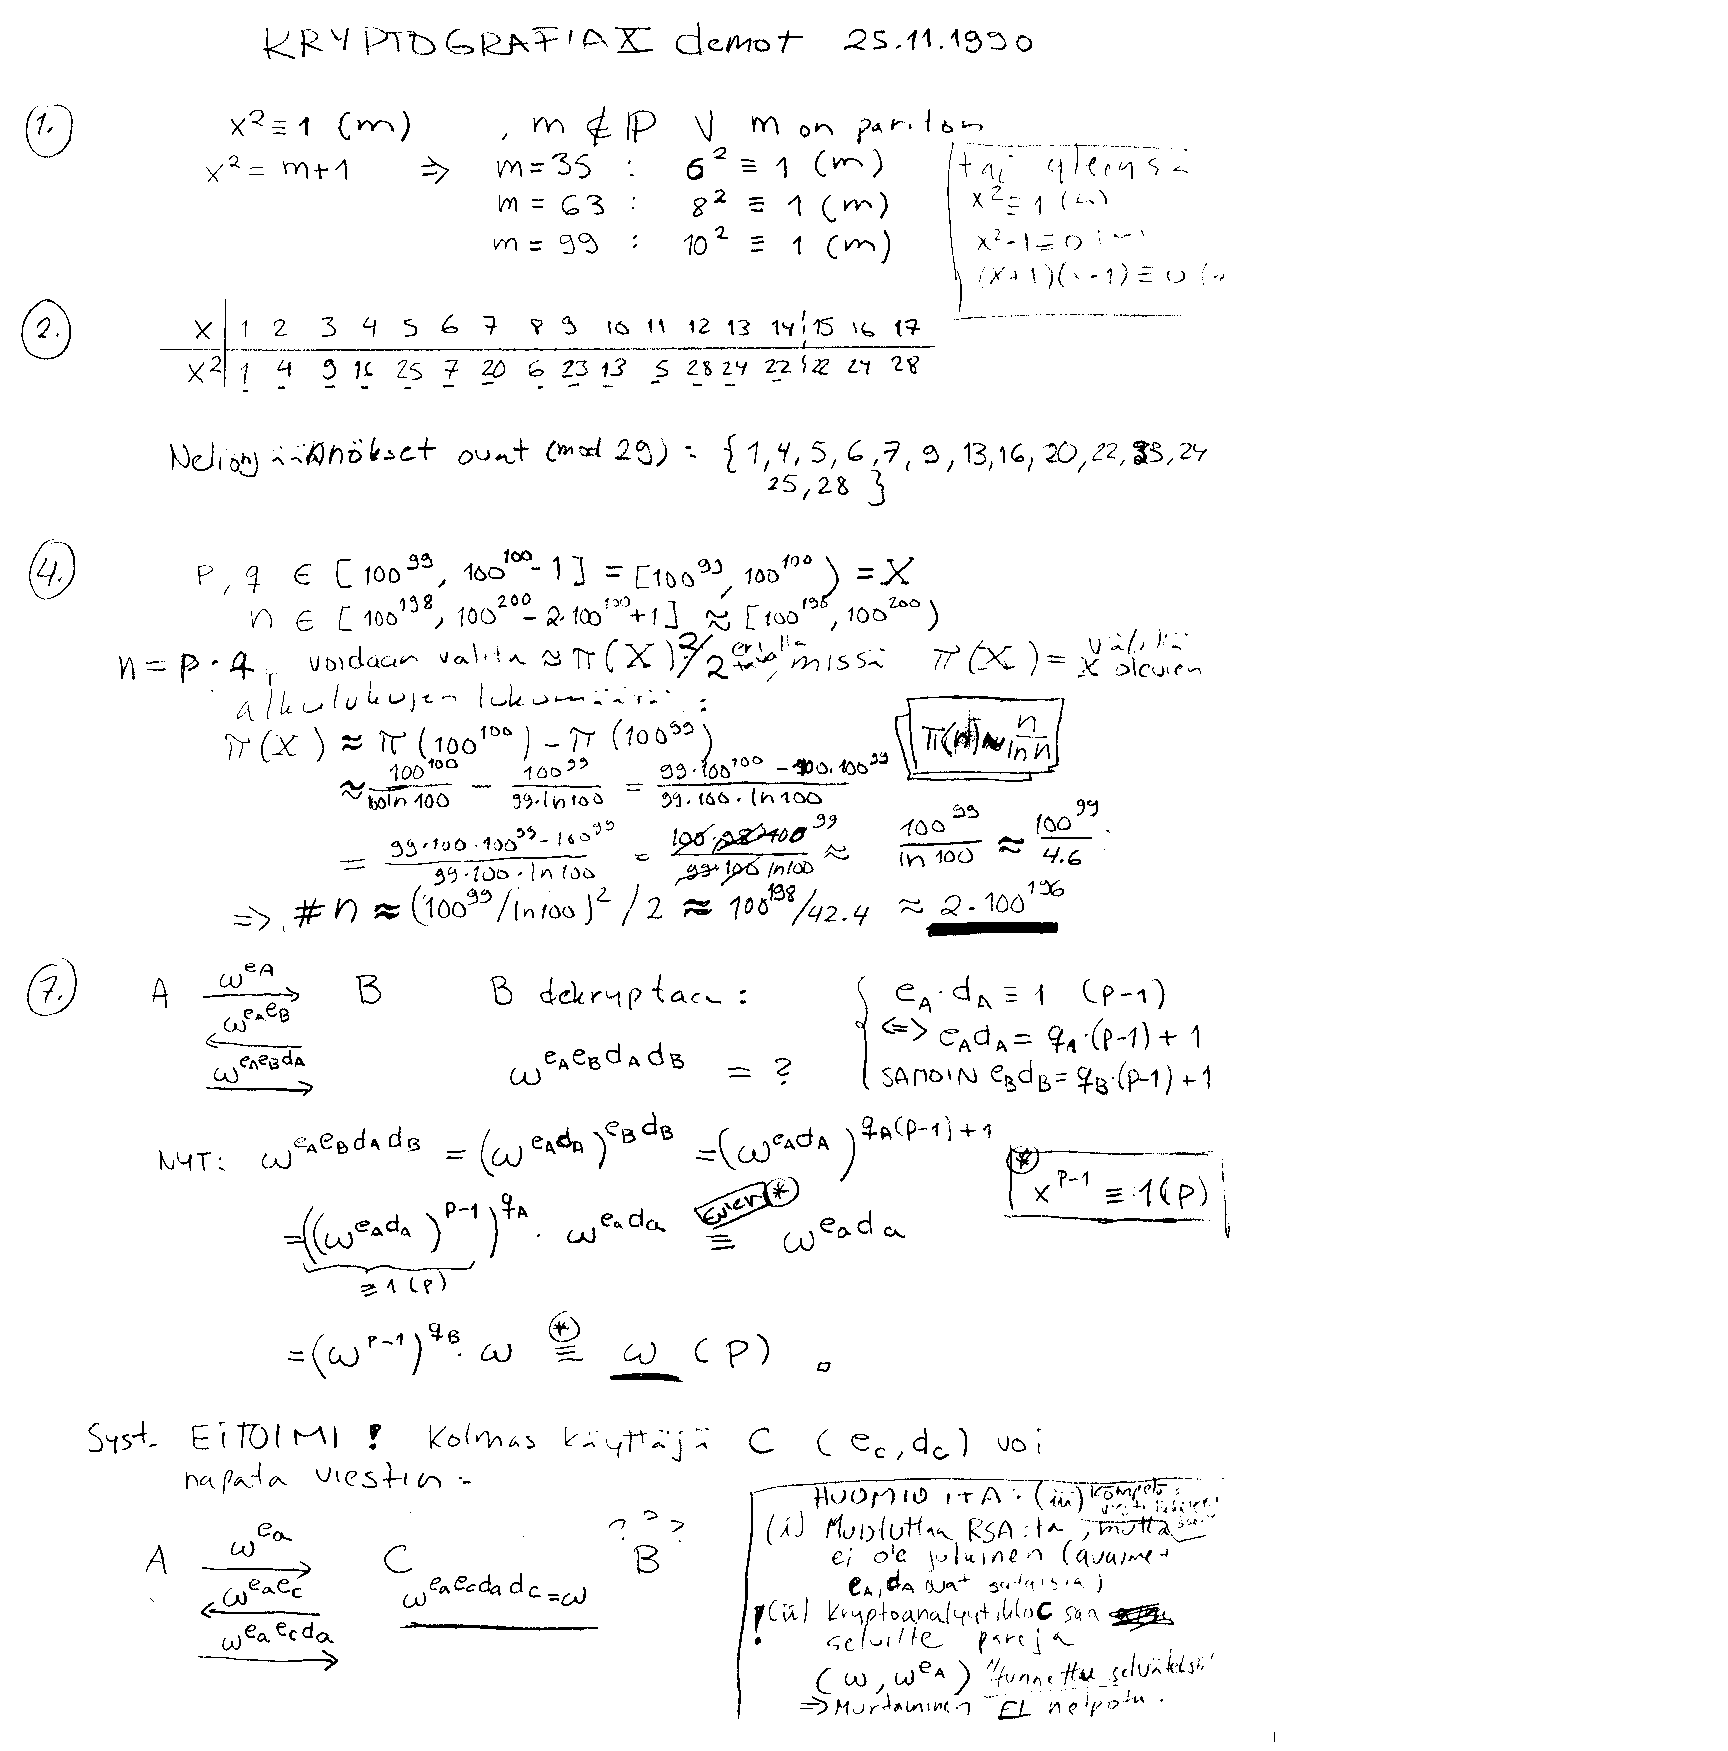 KRYPTOGRAFIA X demot 25.11.1990
1. x² ≡ 1 (m) , m ∉ ℙ ∨ m on pariton
x² = m+1 ⇒ m = 35 : 6² ≡ 1 (m)
m = 63 : 8² ≡ 1 (m)
m = 99 : 10² ≡ 1 (m)
tai yleensä
x² ≡ 1 (m)
x²-1 ≡ 0 (m)
(x+1)(x-1) ≡ 0 (
2. x 1 2 3 4 5 6 7 8 9 10 11 12 13 14 15 16 17
x² 1 4 9 16 25 7 20 6 23 13 5 28 24 22 22 24 28
Neliönjäännökset ovat (mod 29) : {1,4,5,6,7,9,13,16,20,22,23,24
25,28 }
4. p, q ∈ [100⁹⁹, 100¹⁰⁰-1] = [100⁹⁹, 100¹⁰⁰) = X
n ∈ [100¹⁹⁸, 100²⁰⁰ - 2·100¹⁰⁰+1] ≈ [100¹⁹⁸, 100²⁰⁰)
n = p·q, voidaan valita ≈ π(X)²/2 eri tavalla, missä π(X) = välillä X olevien
alkulukujen lukumäärä :
π(X) ≈ π(100¹⁰⁰) - π(100⁹⁹)
π(n) ≈ n/ln n
≈ 100¹⁰⁰/100 ln 100 - 100⁹⁹/99·ln 100 = 99·100¹⁰⁰ - 100·100⁹⁹/99·100·ln 100
= 99·100·100⁹⁹ - 100⁹⁹/99·100·ln 100 = 100·98·100⁹⁹/99·100 ln 100 ≈ 100⁹⁹/ln 100 ≈ 100⁹⁹/4.6
⇒ #n ≈ (100⁹⁹/ln 100)² / 2 ≈ 100¹⁹⁸/42.4 ≈ 2·100¹⁹⁶
7. A ω^eA B B dekryptaa : e_A·d_A ≡ 1 (p-1)
ω^eAeB ⇔ e_A d_A = q_A·(p-1)+1
ω^eAeBdA ω^eAeBdAdB = ? SAMOIN e_B d_B = q_B·(p-1)+1
NYT: ω^eAeBdAdB = (ω^eAdA)^eBdB = (ω^eAdA)^qA(p-1)+1
* x^p-1 ≡ 1 (p)
= ((ω^eAdA)^p-1)^qA · ω^eada Euler * ≡ ω^eada
≡ 1 (p)
= (ω^p-1)^qB · ω * ≡ ω (p) □
Syst. EI TOIMI ! Kolmas käyttäjä C (e_C, d_C) voi
napata viestin =
A ω^ea C ? ? ? B
ω^eaec ω^eaecdadc = ω
ω^eaecda
HUOMIOITA : (iii)
(i) Muistuttaa RSA:ta, mutta
ei ole julkinen (avaimet
e_A, d_A ovat salaisia)
! (ii) Kryptoanalyytikko C saa
selville pareja
(ω, ω^eA) "tunnettu selväteksti"
⇒ Murtaminen EI helpotu.